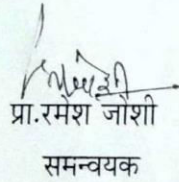 प्रा.रमेश जोशी
समन्वयक